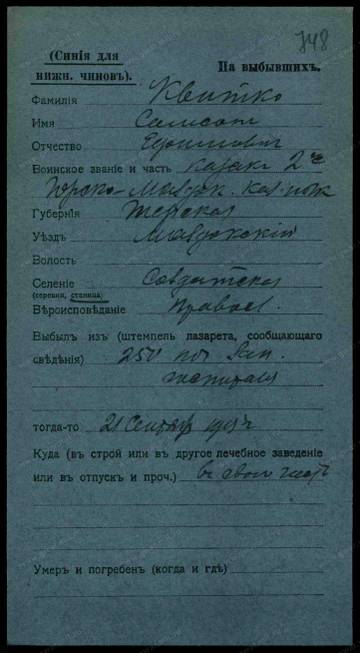 748
(Синія для
нижн. чиновъ).
На выбывшихъ.
Фамилія Квитко
Имя
Отчество Ефимович
Воинское званіе и часть казакъ 2го
Горско-Моздок. каз. полк
Губернія Терская
Уѣздъ Моздокскій
Волость
Селеніе Солдатская
(деревня, станица)
Вѣроисповѣданіе Правосл.
Выбылъ изъ (штемпель лазарета, сообщающаго
свѣдѣнія) 250 пол
госпиталя
тогда-то 21 Сентябр
Куда (въ строй или въ другое лечебное заведеніе
или въ отпускъ и проч.) въ свою часть
Умеръ и погребенъ (когда и гдѣ)